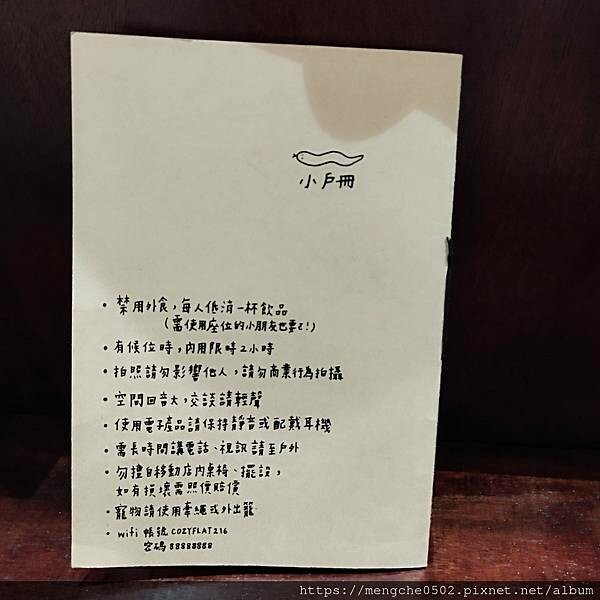 小戶冊
• 禁用外食，每人低消一杯飲品
（需使用座位的小朋友也要ㄛ!）
• 有候位時，內用限時2小時
• 拍照請勿影響他人，請勿商業行為拍攝
• 空間回音大，交談請輕聲
• 使用電子產品請保持靜音或配戴耳機
• 需長時間講電話、視訊請至戶外
• 勿擅自移動店內桌椅、擺設，
如有損壞需照價賠償
• 寵物請使用牽繩或外出籠
• wifi 帳號 COZYFLAT216
密碼 88888888
https://mengche0502.pixnet.net/album